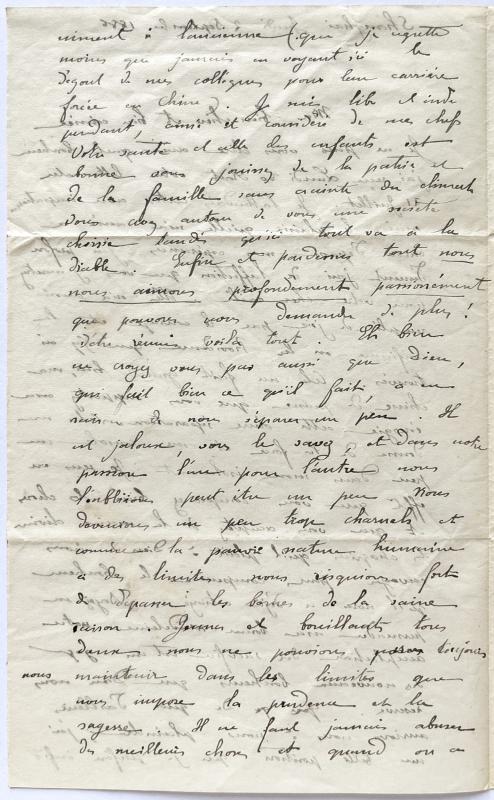 niment à l'ancienne (que je regrette
moins que jamais en voyant ici le
dégout de mes collègues pour leur carrière
forcée en Chine. Je suis libre et indé
pendant, aimé et considéré de mes chefs
Votre santé et celle des enfants est
bonne vous jouissez de la patrie et
de la famille sans crainte du climat
vous avez autour de vous une société
choisie tandis qu'ici tout va à la
diable. Enfin et pardessus tout nous
nous aimons profondement passionément
que pouvons nous demander de plus!
d'être réunis voilà tout. Eh bien
ne croyez vous pas aussi que Dieu,
qui fait bien ce qu'il fait, a eu
raison de nous séparer un peu. Il
est jaloux, vous le savez, et dans notre
passion l'un pour l'autre nous
l'oublions peut être un peu. Nous
devenions un peu trop charnels et
comme la pauvre nature humaine
a des limites nous risquions fort
de dépasser les bornes de la saine
raison. Jeunes et bouillants tous
deux nous ne pouvions pas toujours
nous maintenir dans les limites que
nous impose la prudence et la
sagesse. Il ne faut jamais abuser
des meilleures choses et quand on a